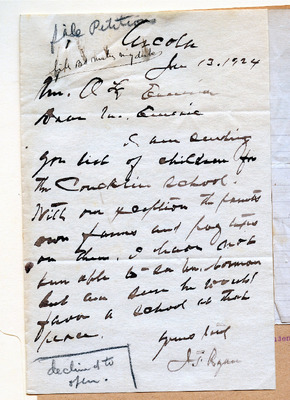 file Petitions
Lincoln
Jan 13, 1924
Mr. A
Dear Mr.
I am sending
you list of children for
the Conklin school.
With one exception the parents
own farms and pay taxes
on them. I have not
been able to see Mr. Norman
but am sure he would
favor a school at that
place.
Yours truly
J. F. Ryan
declined to
open.